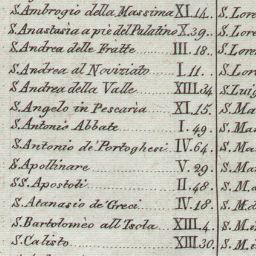 S. Ambrogio della Massima XI. 14. S. Lore
S. Anastasia a piè del Palatino X. 39. S. Lore
S. Andrea delle Fratte III. 18. S. Lore
S. Andrea al Noviziato I. 11. S. Lor
S. Andrea della Valle VIII. 34 S. Luig
S. Angelo in Pescaria XI. 15. S. Ma
S. Antonio Abbate I. 49. S. Mar
S. Antonio de' Portogheci IV. 64. S. Ma
S. Apollinare V. 29. S. Ma
SS. Apostoli II. 48. S. Ma
S. Atanasio de' Greci IV. 18. S. M.
S. Bartolomèo all'Isola XIII. 4. S. M.
S. Calisto XIII. 30. S. M.